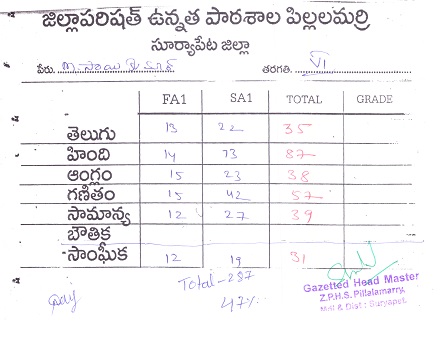 జిల్లాపరిషత్ ఉన్నత పాఠశాల పిల్లలమర్రి
సూర్యాపేట జిల్లా
పేరు. m. సాయి కుమార్ తరగతి. VI
FA1 SA1 TOTAL GRADE
తెలుగు 13 22 35
హింది 14 73 87
ఆంగ్లం 15 23 38
గణితం 15 42 57
సామాన్య 12 27 39
భౌతిక
సాంఘీక 12 19 31
Total-287
47%
Gazetted Head Master
Z.P.H.S. Pillalamarry,
Mdl & Dist : Suryapet.